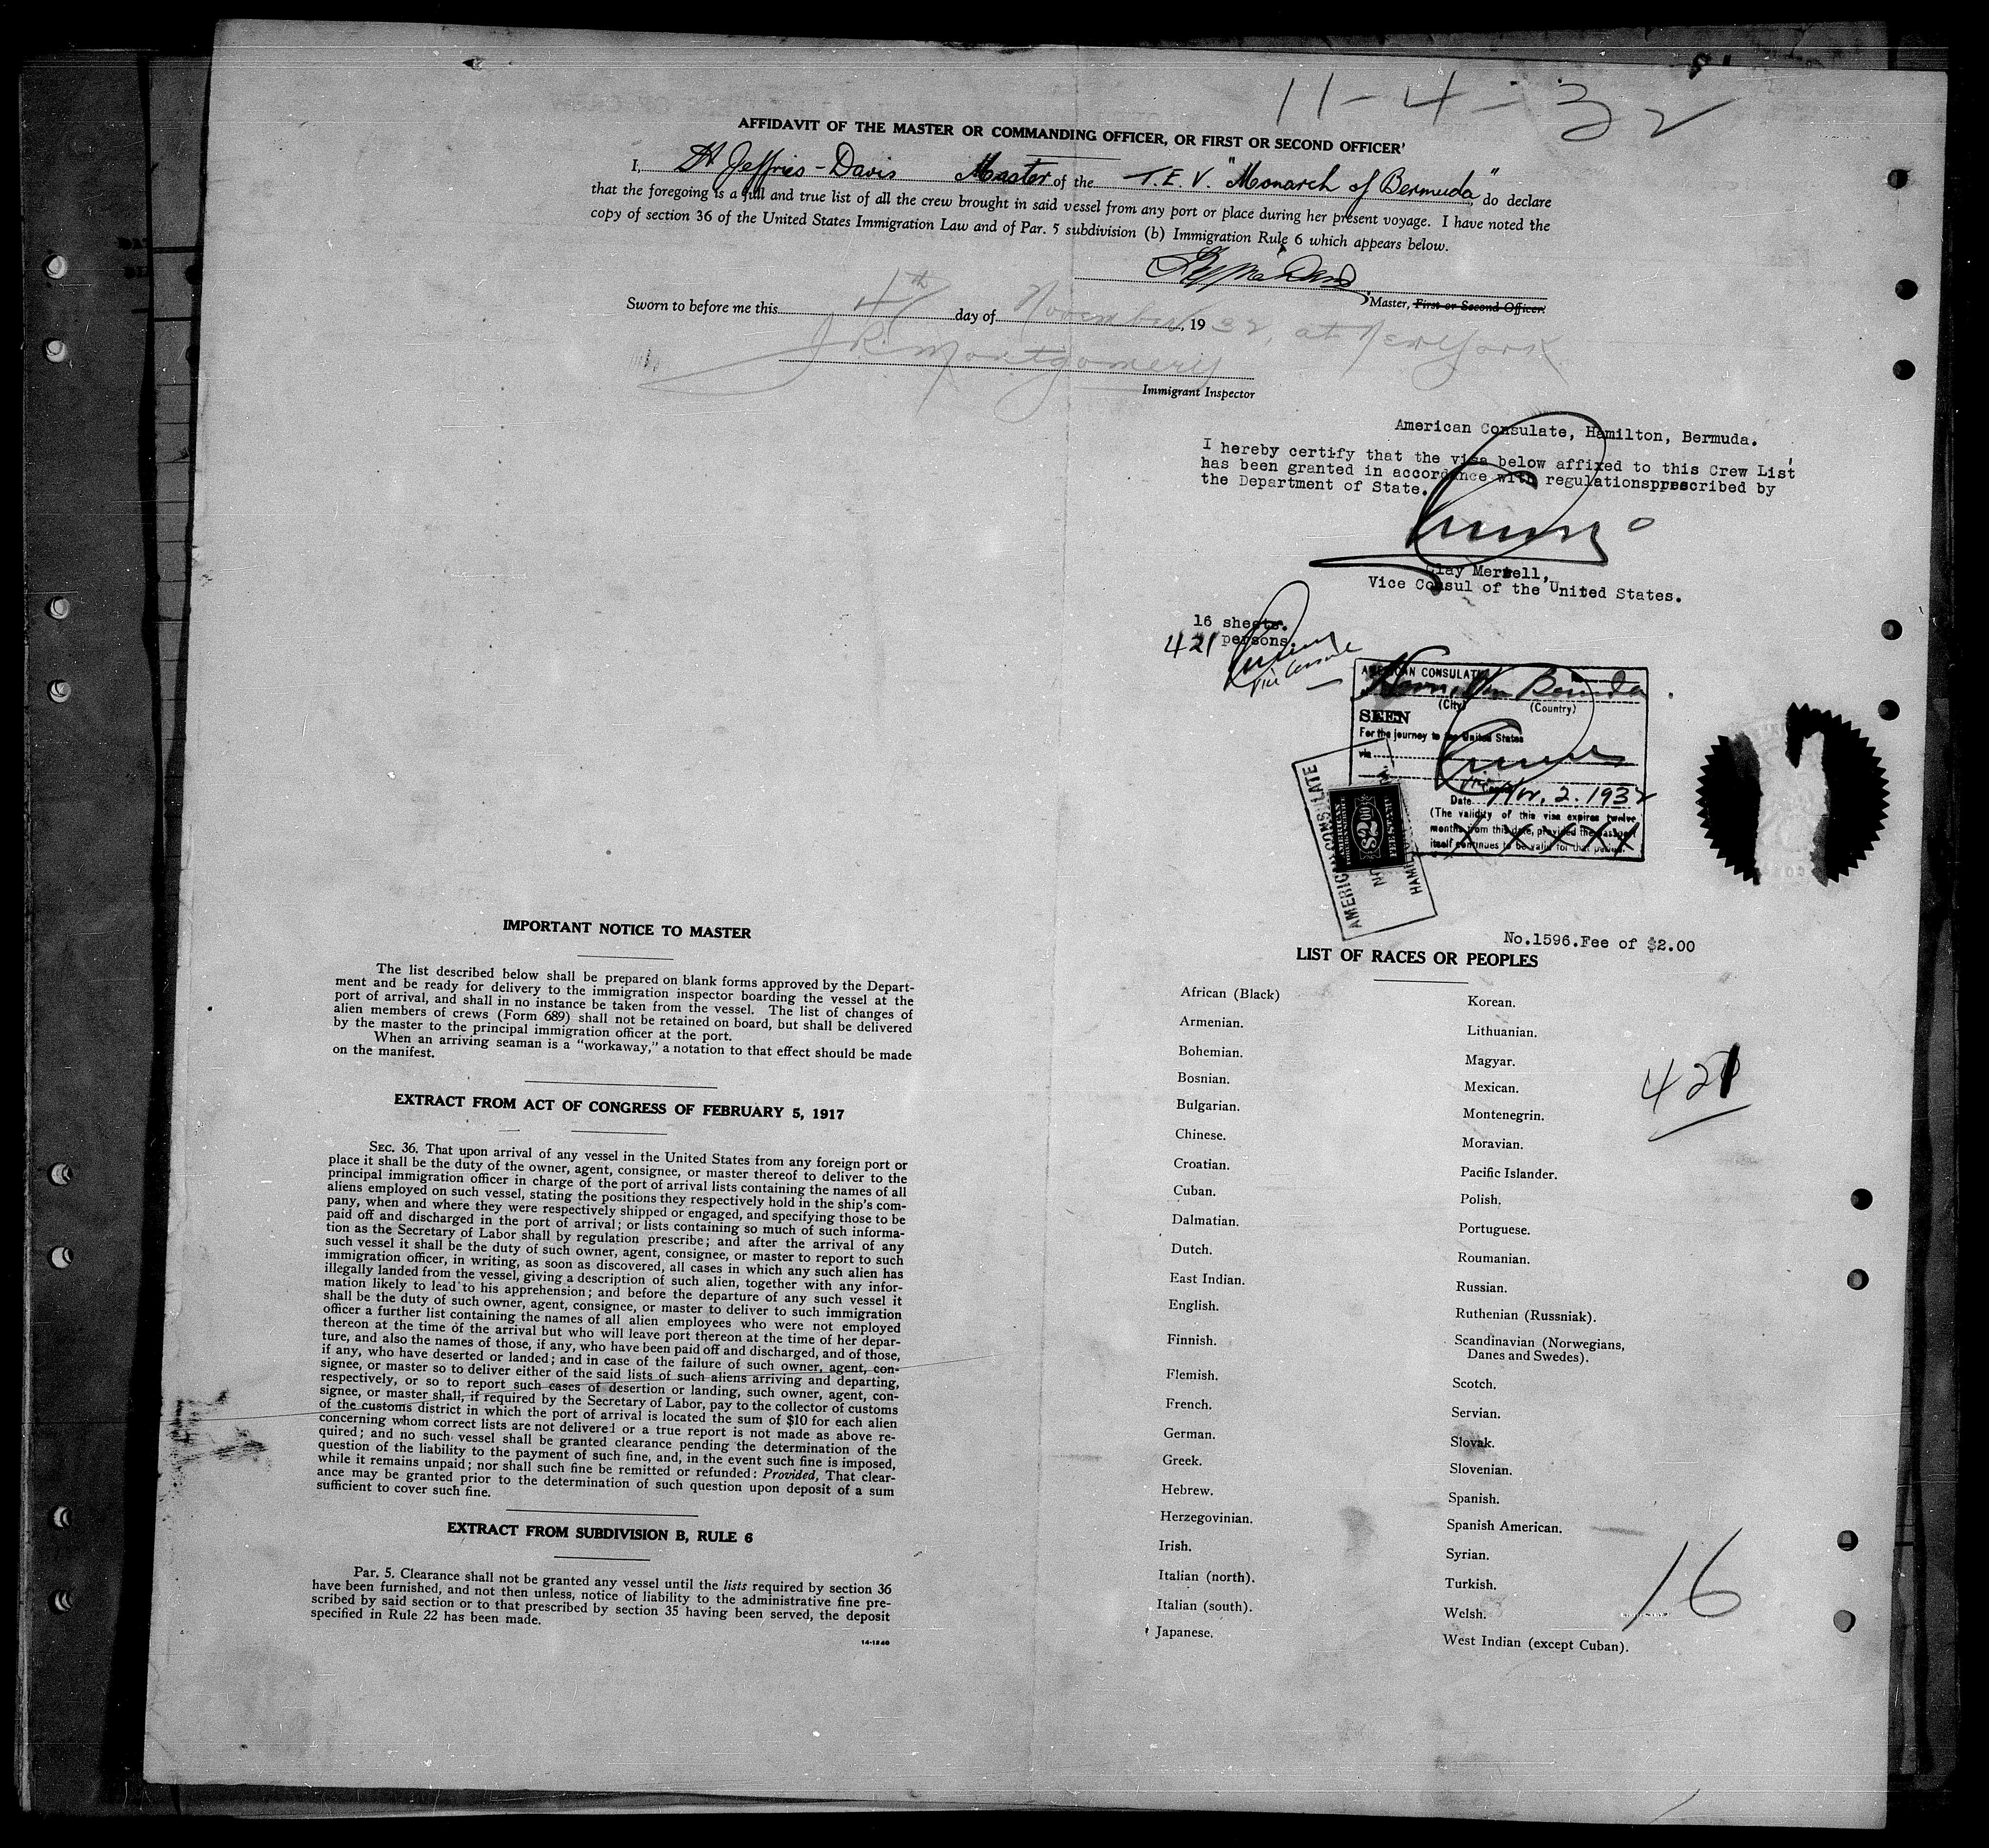 11-4-32
AFFIDAVIT OF THE MASTER OR COMMANDING OFFICER, OR FIRST OR SECOND OFFICER
I, H Jeffries-Davis Master of the T.E.V. "Monarch of Bermuda", do declare
that the foregoing is a full and true list of all the crew brought in said vessel from any port or place during her present voyage. I have noted the
copy of section 36 of the United States Immigration Law and of Par. 5 subdivision (b) Immigration Rule 6 which appears below.
Master, First or Second Officer.
Sworn to before me this 4th day of November, 1932, at New York
J R Montgomery
Immigrant Inspector
American Consulate, Hamilton, Bermuda.
I hereby certify that the visa below affixed to this Crew List
has been granted in accordance with regulationsprescribed by
the Department of State.
Clay Merrell,
Vice Consul of the United States.
16 sheets.
421 persons.
Vice Consul
AMERICAN CONSULATE
Bermuda
(City) (Country)
SEEN
For the journey to the United States
via
Date Nov. 2. 1932
(The validity of this visa expires twelve
months from this date, provided the passport
itself continues to be valid for that period.
AMERICAN CONSULATE
HAMILTON
AMERICAN
FOREIGN SERVICE
$2.00
FEE STAMP
No.1596.Fee of $2.00
IMPORTANT NOTICE TO MASTER
The list described below shall be prepared on blank forms approved by the Depart-
ment and be ready for delivery to the immigration inspector boarding the vessel at the
port of arrival, and shall in no instance be taken from the vessel. The list of changes of
alien members of crews (Form 689) shall not be retained on board, but shall be delivered
by the master to the principal immigration officer at the port.
When an arriving seaman is a "workaway," a notation to that effect should be made
on the manifest.
EXTRACT FROM ACT OF CONGRESS OF FEBRUARY 5, 1917
SEC. 36. That upon arrival of any vessel in the United States from any foreign port or
place it shall be the duty of the owner, agent, consignee, or master thereof to deliver to the
principal immigration officer in charge of the port of arrival lists containing the names of all
aliens employed on such vessel, stating the positions they respectively hold in the ship's com-
pany, when and where they were respectively shipped or engaged, and specifying those to be
paid off and discharged in the port of arrival; or lists containing so much of such informa-
tion as the Secretary of Labor shall by regulation prescribe; and after the arrival of any
such vessel it shall be the duty of such owner, agent, consignee, or master to report to such
immigration officer, in writing, as soon as discovered, all cases in which any such alien has
illegally landed from the vessel, giving a description of such alien, together with any infor-
mation likely to lead to his apprehension; and before the departure of any such vessel it
shall be the duty of such owner, agent, consignee, or master to deliver to such immigration
officer a further list containing the names of all alien employees who were not employed
thereon at the time of the arrival but who will leave port thereon at the time of her depar-
ture, and also the names of those, if any, who have been paid off and discharged, and of those,
if any, who have deserted or landed; and in case of the failure of such owner, agent, con-
signee, or master so to deliver either of the said lists of such aliens arriving and departing,
respectively, or so to report such cases of desertion or landing, such owner, agent, con-
signee, or master shall, if required by the Secretary of Labor, pay to the collector of customs
of the customs district in which the port of arrival is located the sum of $10 for each alien
concerning whom correct lists are not delivered or a true report is not made as above re-
quired; and no such vessel shall be granted clearance pending the determination of the
question of the liability to the payment of such fine, and, in the event such fine is imposed,
while it remains unpaid; nor shall such fine be remitted or refunded: Provided, That clear-
ance may be granted prior to the determination of such question upon deposit of a sum
sufficient to cover such fine.
EXTRACT FROM SUBDIVISION B, RULE 6
Par. 5. Clearance shall not be granted any vessel until the lists required by section 36
have been furnished, and not then unless, notice of liability to the administrative fine pre-
scribed by said section or to that prescribed by section 35 having been served, the deposit
specified in Rule 22 has been made.
14-1240
LIST OF RACES OR PEOPLES
African (Black)
Armenian.
Bohemian.
Bosnian.
Bulgarian.
Chinese.
Croatian.
Cuban.
Dalmatian.
Dutch.
East Indian.
English.
Finnish.
Flemish.
French.
German.
Greek.
Hebrew.
Herzegovinian.
Irish.
Italian (north).
Italian (south).
Japanese.
Korean.
Lithuanian.
Magyar.
Mexican.
Montenegrin.
Moravian.
Pacific Islander.
Polish.
Portuguese.
Roumanian.
Russian.
Ruthenian (Russniak).
Scandinavian (Norwegians,
Danes and Swedes).
Scotch.
Servian.
Slovak.
Slovenian.
Spanish.
Spanish American.
Syrian.
Turkish.
Welsh.
West Indian (except Cuban).
421
16